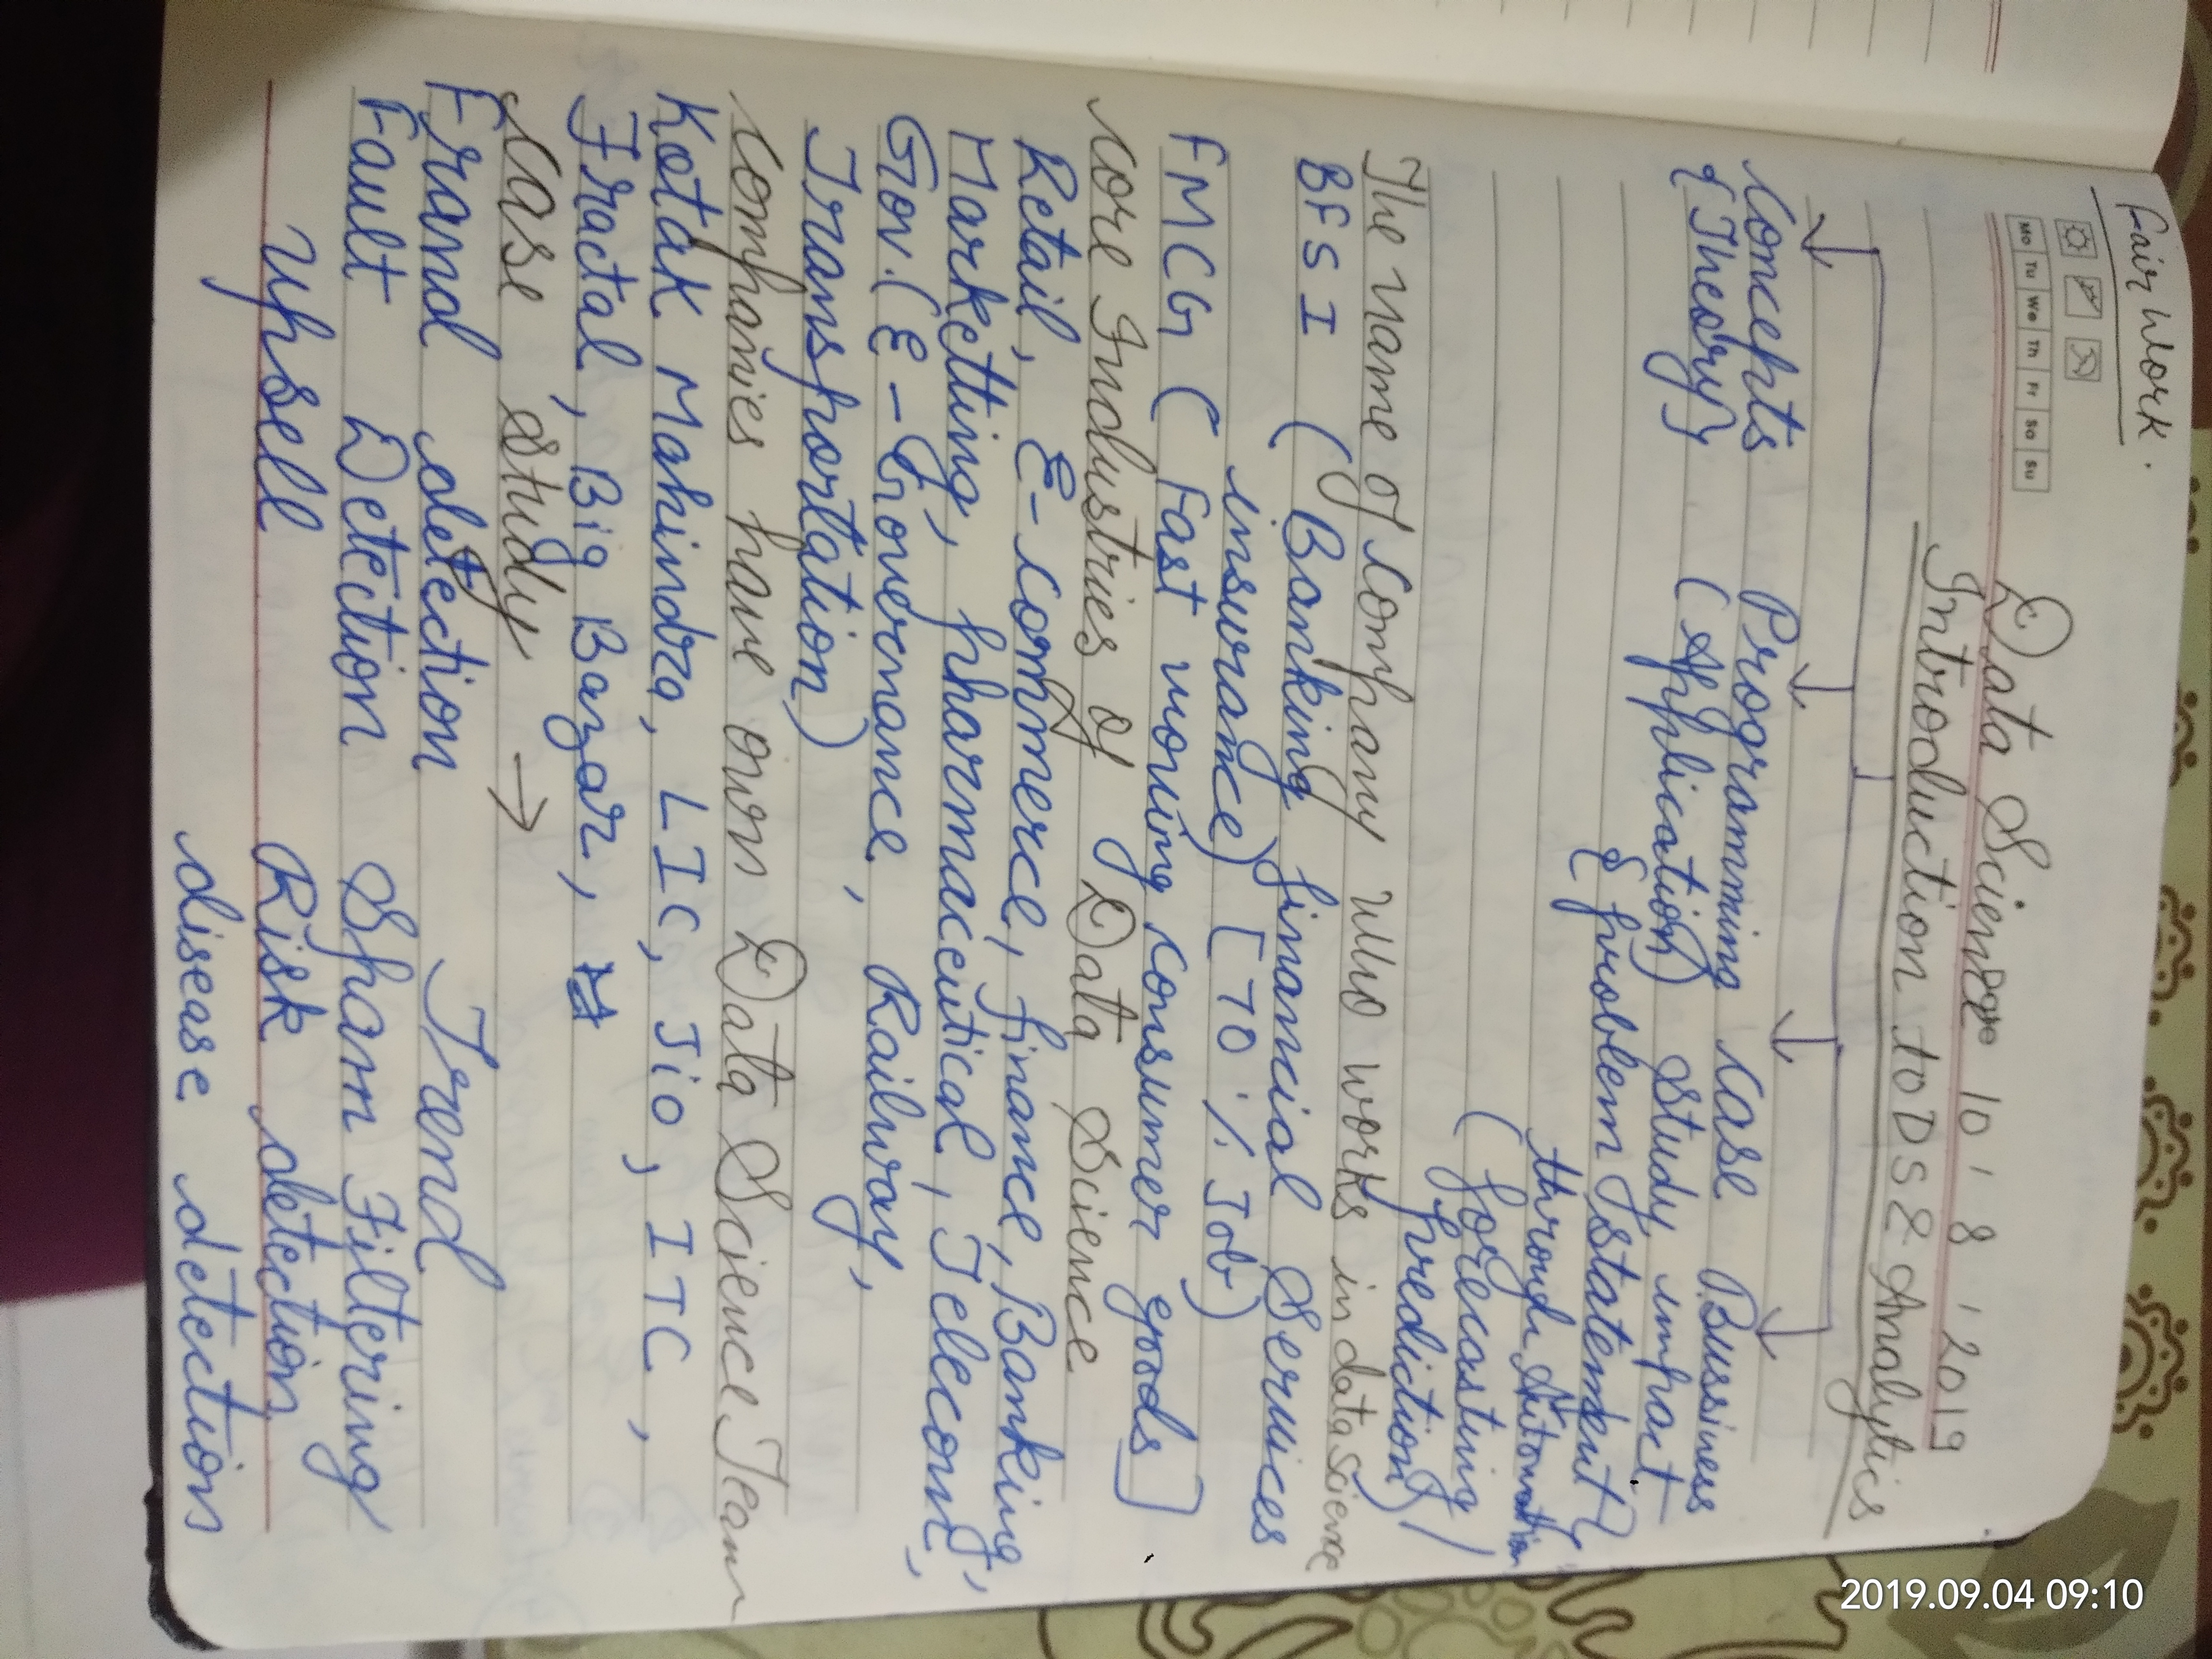 Fair Work.
Mo Tu We Th Fr Sa Su
Data Science 10 / 8 / 2019
Introduction to DS & Analytics
Concepts Programming Case Bussiness
{Theory} (Application) Study impact
{problem statement}
through Automation
(forecasting /
prediction)
The name of Company who works in data science
BFSI (Banking financial Services
insurance) [70 % Job)
FMCG (Fast moving consumer goods]
Core Industries of Data Science
Retail, E-commerce, finance, Banking,
Marketting, pharmaceutical, Telecom,
Gov. (E-Governance, Railway,
Transportation)
Companies have own Data Science Team
Kotak Mahindra, LIC, Jio, ITC,
Fractal, Big Bazar,
Case study →
Fraud detection Trend
Fault Detection Spam Filtering
Upsell Risk detection
disease detection
2019.09.04 09:10